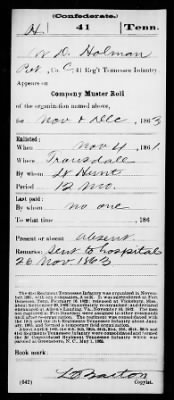 (Confederate.)
H 41 Tenn.
W D. Holman
Pvt, Co. C, 41 Reg't Tennessee Infantry.
Appears on
Company Muster Roll
of the organization named above,
for Nov & Dec, 1863
Enlisted:
When Nov 4, 1861.
Where Trousdale
By whom Lt Hunt
Period 12 Mo.
Last paid:
By whom no one
To what time , 186
Present or absent absent
Remarks: Sent to hospital
26 Nov 1863
Book mark:
(642) Copyist.